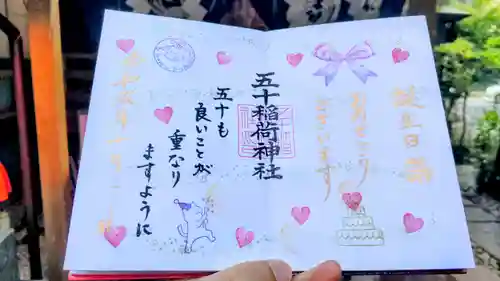 誕生日
おめでとう
ございます
五十稲荷神社
五十も
良いことが
重なり
ますように